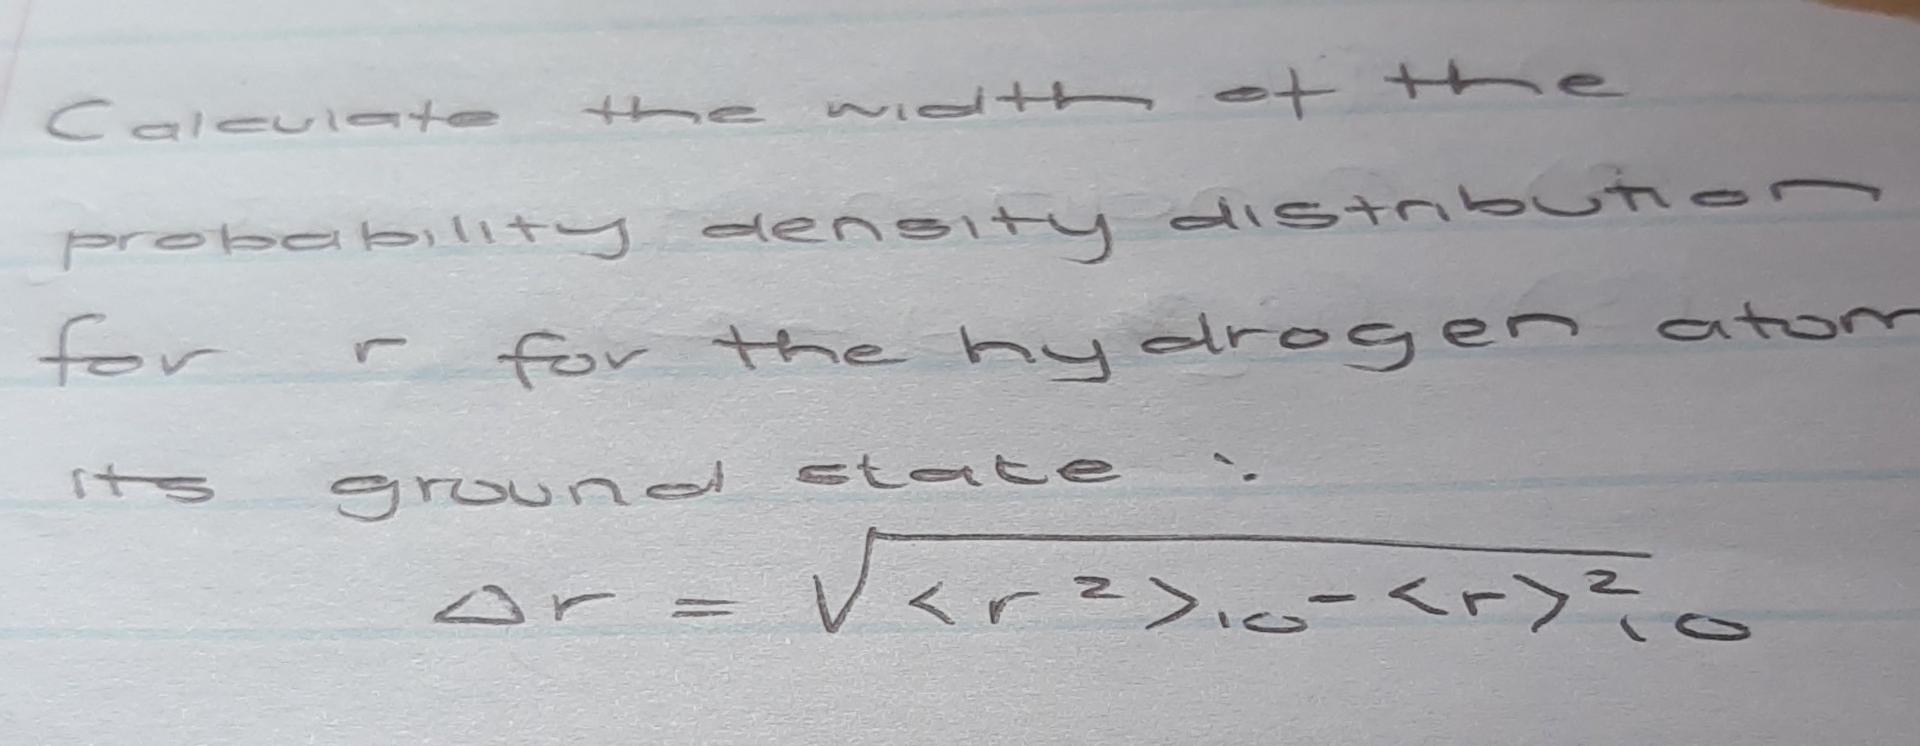 Calculate the width of the
probability density distribution
for r for the hydrogen atom
its ground state :
Δr = √<r²>₁₀ - <r>²₁₀